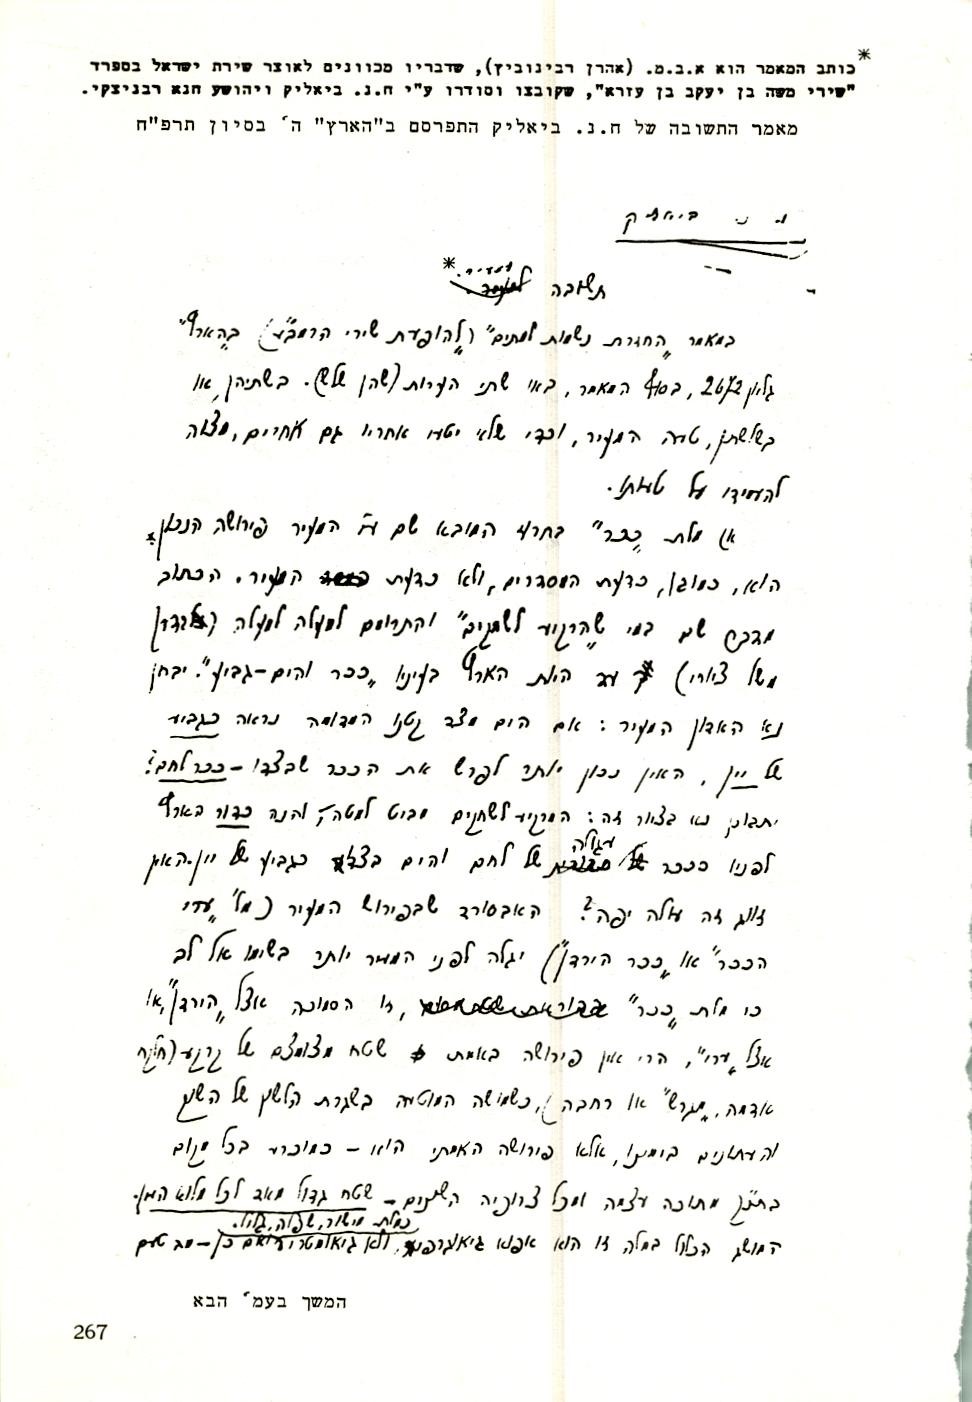 *כותב המאמר הוא א.ב.מ. (אהרן רבינוביץ), שדבריו מכוונים לאוצר שירת ישראל בספרד
"שירי משה בן יעקב בן עזרא", שקובצו וסודרו ע"י ח.נ. ביאליק ויהושע חנא רבניצקי.
מאמר התשובה של ח.נ. ביאליק התפרסם ב"הארץ" ה' בסיון תרפ"ח
ח. נ. ביאליק
תשובה למעיר.*
במאמר "החזרת נשמות למתים" (להופעת שירי הרמב"ע) ב"הארץ"
גליון 2672, בסוף המאמר, באו שתי הערות (שהן שלש). בשתיהן, או
בשלשתן, טעה המעיר, וכדי שלא יטעו אחריו גם אחרים, מצוה
להעמידו על טעותו.
א) מלת "ככר" בחרוז המובא שם ע"י המעיר פירושה הנכון
הוא, כמובן, כדעת המסדרים, ולא כדעת המעיר. הכתוב
מדבר שם במי ש"הרקיע לשחקים" והתרומם למעלה למעלה
משל ציורי) עד היות הארץ בעיניו "ככר והים – גביע". יבחן
נא האדון המעיר: אם הים מצד קטנו המדומה נראה כגביע
של יין, האין נכון יותר לפרש את הככר שבצדו – ככר לחם?
יתבונן נא בציור זה: המרקיע לשחקים מביט למטה, והנה כדור הארץ
לפניו כככר עגולה של לחם והים בצדו כגביע של יין. האין
זווג זה עולה יפה? האבסורד שבפירוש המעיר (מל' "ערי
הככר" או "ככר הירדן") יגלה לפני המעיר יותר בשימו אל לב
כי מלת "ככר", זו הסמוכה אצל "הירדן", או
אצל "ערי", הרי אין פירושה באמת שטח מצומצם של קרקע (חלקת
אדמה, "מגרש" או רחבה), כשמושה המוטעה בשגרת הלשון של השוק
והעתונים בימינו, אלא פירושה האמתי הוא – כמוכרע בכל מקום
בתנ"ך מתוכה עצמה ומכל צרופיה השונים – שטח גדול מאד לכל מלוא העין.
כמלת מישור, שפלה, גליל.
המושג הכלול במלה זו הוא אפוא גיאוגרפי, ולא גיאומטרי ואם כן – מה טעם
המשך בעמ' הבא
267